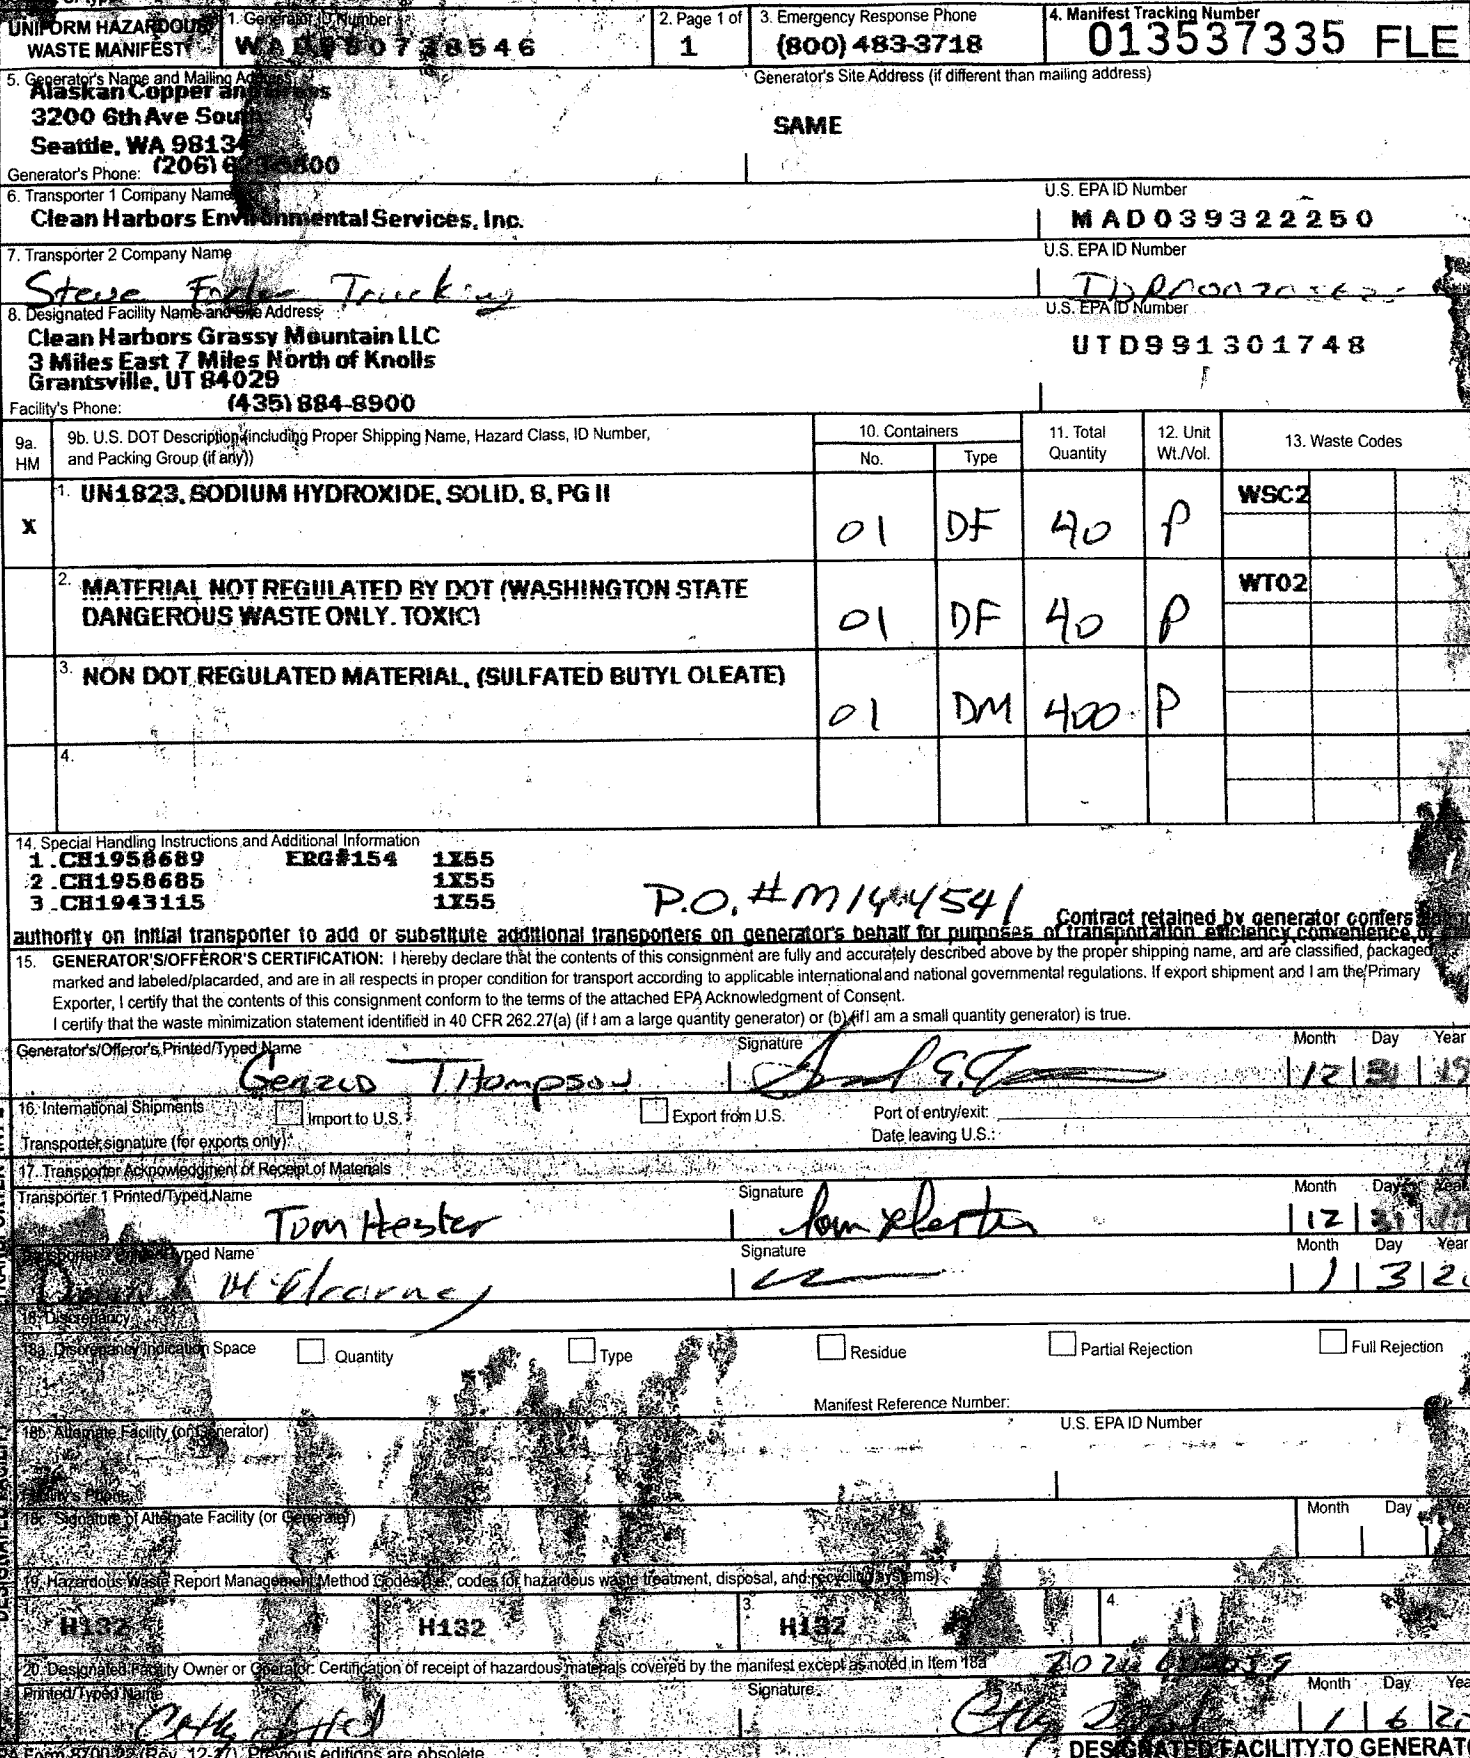 UNIFORM HAZARDOUS
WASTE MANIFEST
1. Generator ID Number
2. Page 1 of
1
3. Emergency Response Phone
(800) 483-3718
4. Manifest Tracking Number
013537335 FLE
5. Generator's Name and Mailing Address
Alaskan Copper and
3200 6th Ave South
Seattle, WA 98134
Generator's Phone: (206)
Generator's Site Address (if different than mailing address)
SAME
6. Transporter 1 Company Name
Clean Harbors Environmental Services, Inc.
U.S. EPA ID Number
MAD039322250
7. Transporter 2 Company Name
Steve Trucking
U.S. EPA ID Number
8. Designated Facility Name and Site Address
Clean Harbors Grassy Mountain LLC
3 Miles East 7 Miles North of Knolls
Grantsville, UT 84029
Facility's Phone: (435) 884-8900
U.S. EPA ID Number
UTD991301748
9a. HM
9b. U.S. DOT Description (including Proper Shipping Name, Hazard Class, ID Number,
and Packing Group (if any))
10. Containers
No. Type
11. Total Quantity
12. Unit Wt./Vol.
13. Waste Codes
X 1. UN1823, SODIUM HYDROXIDE, SOLID, 8, PG II 01 DF 40 P WSC2
2. MATERIAL NOT REGULATED BY DOT (WASHINGTON STATE
DANGEROUS WASTE ONLY. TOXIC) 01 DF 40 P WT02
3. NON DOT REGULATED MATERIAL, (SULFATED BUTYL OLEATE) 01 DM 400 P
4.
14. Special Handling Instructions and Additional Information
1.CH1958689 ERG#154 1X55
2.CH1958685 1X55
3.CH1943115 1X55
P.O.#M144541
Contract retained by generator confers
authority on initial transporter to add or substitute additional transporters on generator's behalf for purposes of transportation efficiency convenience or
15. GENERATOR'S/OFFEROR'S CERTIFICATION: I hereby declare that the contents of this consignment are fully and accurately described above by the proper shipping name, and are classified, packaged
marked and labeled/placarded, and are in all respects in proper condition for transport according to applicable international and national governmental regulations. If export shipment and I am the Primary
Exporter, I certify that the contents of this consignment conform to the terms of the attached EPA Acknowledgment of Consent.
I certify that the waste minimization statement identified in 40 CFR 262.27(a) (if I am a large quantity generator) or (b) (if I am a small quantity generator) is true.
Generator's/Offeror's Printed/Typed Name
Thompson
Signature
Month Day Year
12 31 19
16. International Shipments
Import to U.S.
Export from U.S.
Port of entry/exit:
Transporter signature (for exports only):
Date leaving U.S.:
17. Transporter Acknowledgment of Receipt of Materials
Transporter 1 Printed/Typed Name
Tom Hester
Signature
Month Day Year
12 31
Transporter 2 Printed/Typed Name
Signature
Month Day Year
1 3
18. Discrepancy
18a. Discrepancy Indication Space
Quantity
Type
Residue
Partial Rejection
Full Rejection
Manifest Reference Number:
18b. Alternate Facility (or Generator)
U.S. EPA ID Number
Facility's Phone:
18c. Signature of Alternate Facility (or Generator)
Month Day
19. Hazardous Waste Report Management Method Codes (i.e., codes for hazardous waste treatment, disposal, and recycling systems)
H132
H132
3. H132
4.
20. Designated Facility Owner or Operator: Certification of receipt of hazardous materials covered by the manifest except as noted in Item 18a
Printed/Typed Name
Signature
Month Day
1 6
Form 8700-22 (Rev. 12-17) Previous editions are obsolete.
DESIGNATED FACILITY TO GENERATO